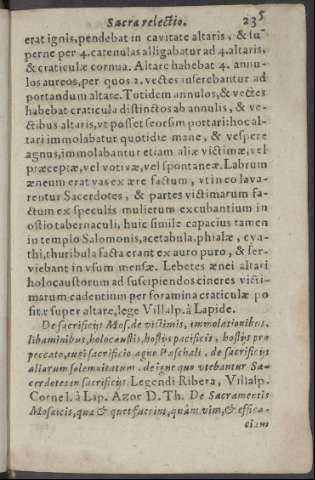 Sacra relectio. 235
erat ignis, pendebat in cavitate altaris, & su-
perne per 4. catenulas alligabatur ad 4. altaris,
& craticulæ cornua. Altare habebat 4. annu-
los aureos, per quos 2. vectes inserebantur ad
portandum altare. Totidem annulos, & vectes
habebat craticula distinctos ab annulis, & ve-
ctibus altaris, vt posset seorsim portari: hoc al-
tari immolabatur quotidie mane, & vespere
agnus, immolabantur etiam aliæ victimæ, vel
præceptæ, vel votivæ, vel spontaneæ. Labrum
æneum erat vas ex ære factum, vt in eo lava-
rentur Sacerdotes, & partes victimarum fa-
ctum ex speculis mulierum excubantium in
ostio tabernaculi, huic simile capacius tamen
in templo Salomonis, acetabula. phialæ, cya-
thi, thuribula facta erant ex auro puro, & ser-
viebant in vsum mensæ. Lebetes ænei altari
holocaustorum ad suscipiendos cineres victi-
marum cadentium per foramina craticulæ po
sitæ super altare, lege Villalp. à Lapide.
De sacrificijs Mos. de victimis, immolationibus,
libaminibus, holocaustis, hostijs pacificis, hostijs pro
peccato, iugi sacrificio. agno Paschali, de sacrificijs
aliarum solemnitatum. de igne quo vtebantur Sa-
cerdotes in sacrificijs. Legendi Ribera, Villalp.
Cornel. à Lap. Azor D. Th. De Sacramentis
Mosaicis, quæ & quot fuerint, quàm vim, & effica-
ciam